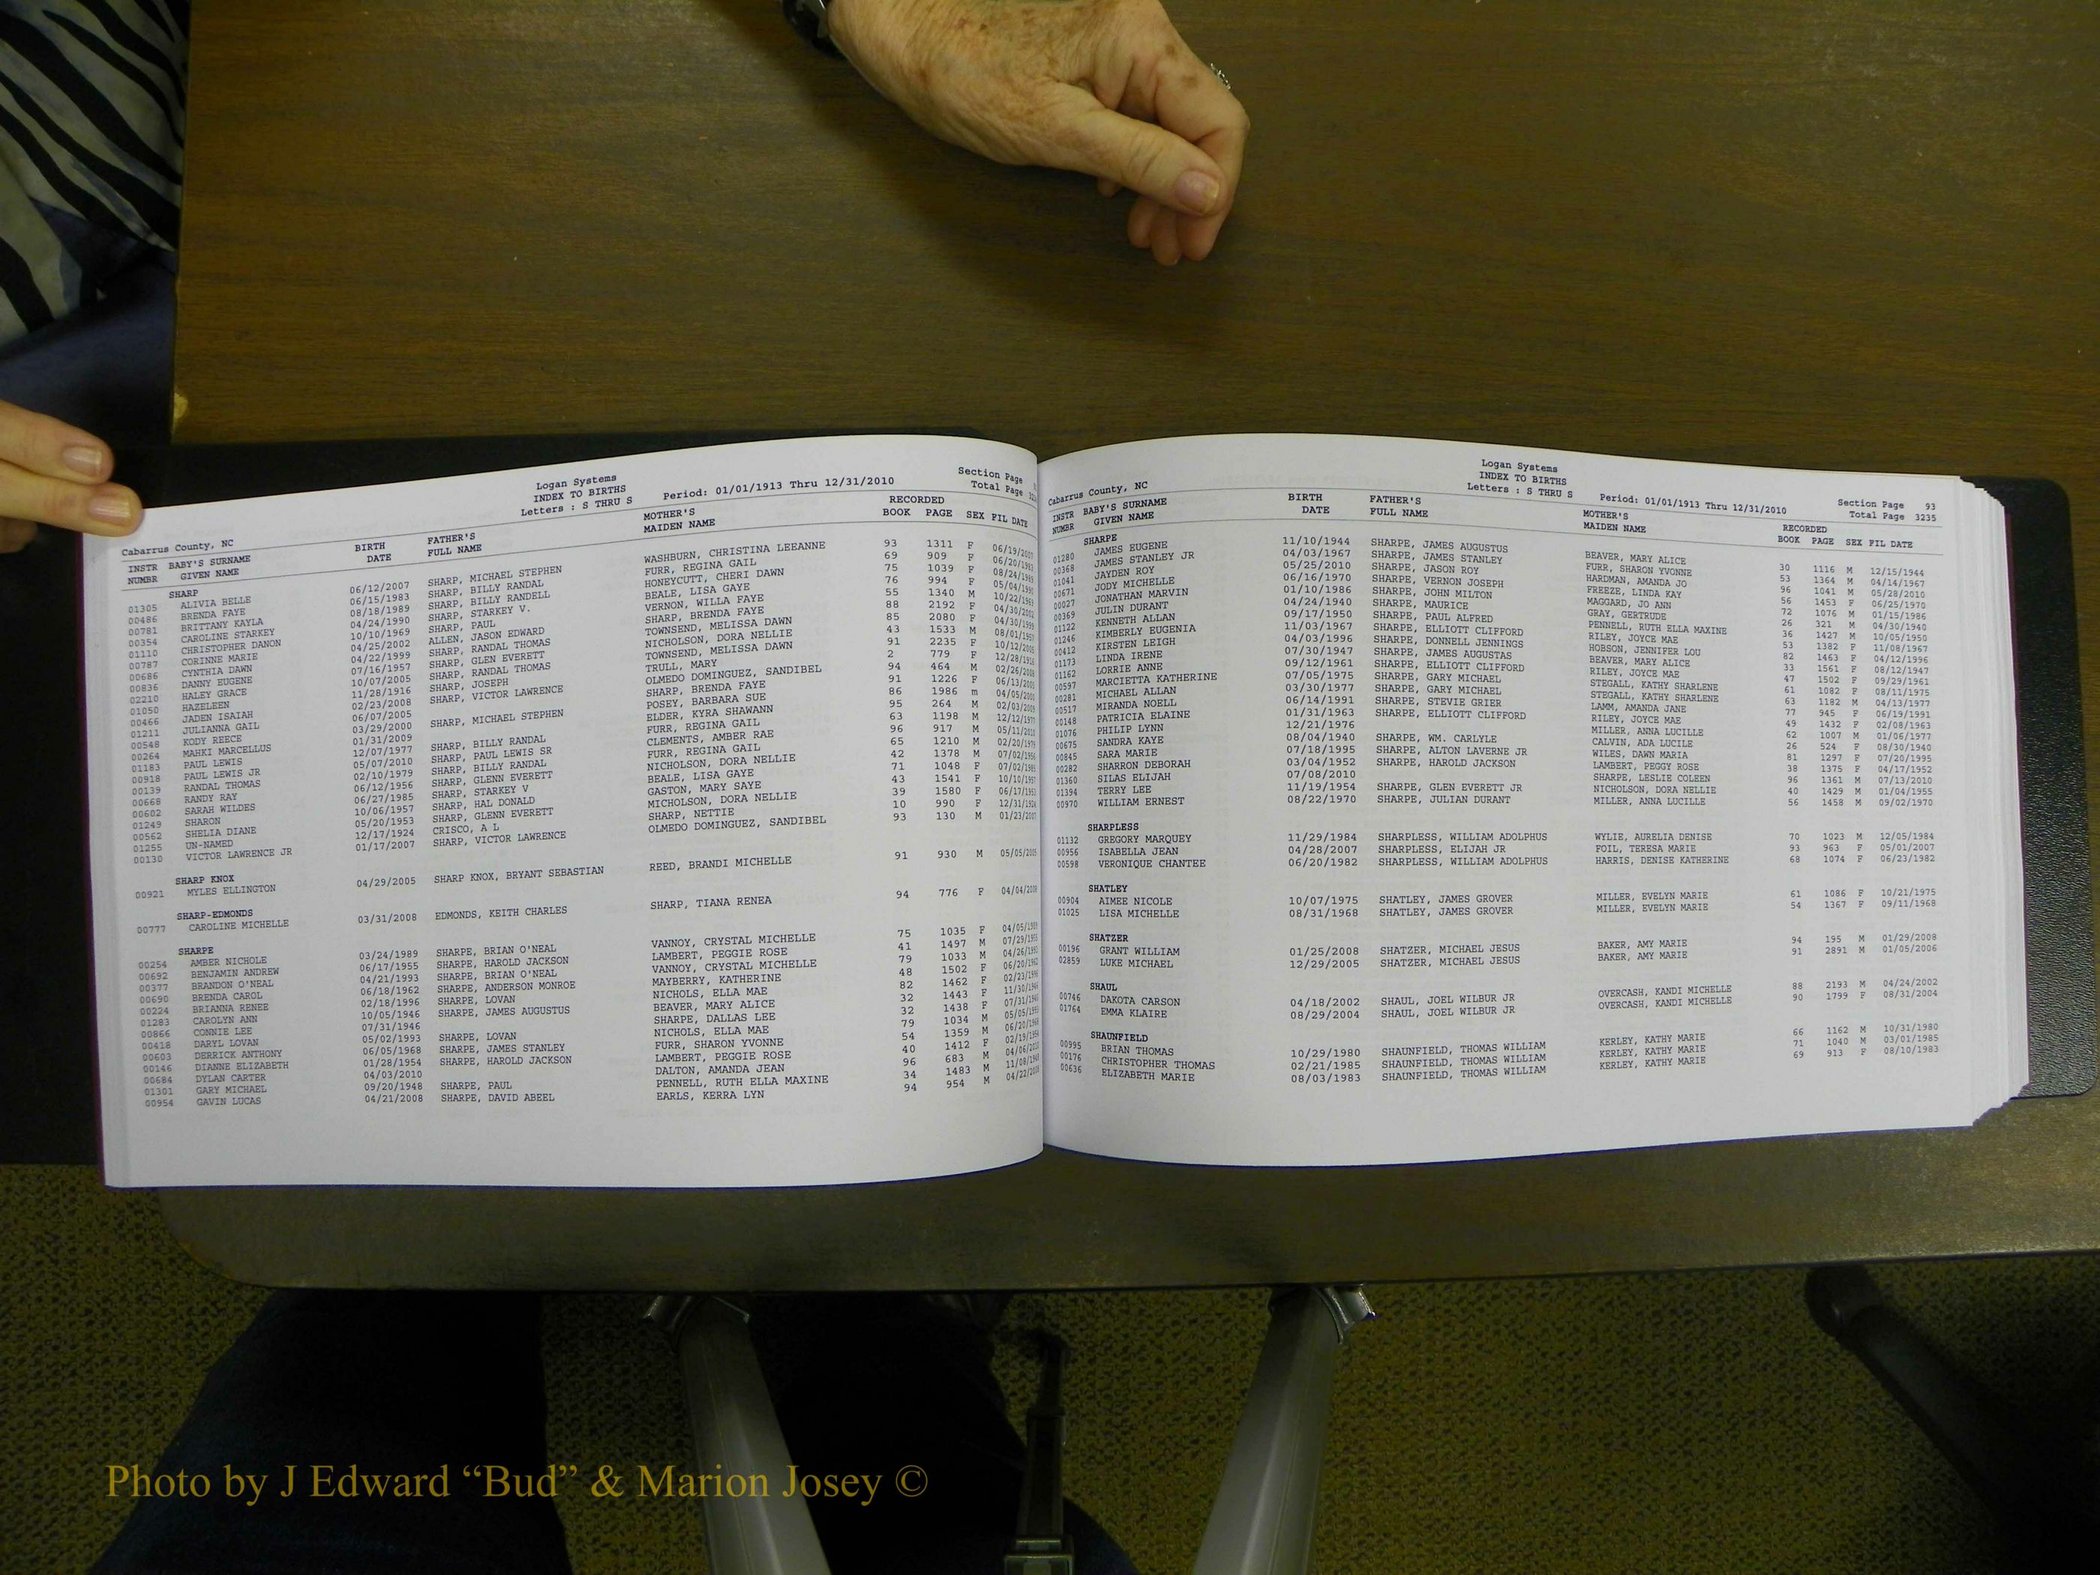 Logan Systems
INDEX TO BIRTHS
Letters : S THRU S Period: 01/01/1913 Thru 12/31/2010
Section Page
Total Page
Cabarrus County, NC
INSTR BABY'S SURNAME BIRTH FATHER'S MOTHER'S RECORDED
NUMBR GIVEN NAME DATE FULL NAME MAIDEN NAME BOOK PAGE SEX FIL DATE
SHARP
01305 ALIVIA BELLE 06/12/2007 SHARP, MICHAEL STEPHEN WASHBURN, CHRISTINA LEEANNE 93 1311 F 06/19/2007
00486 BRENDA FAYE 06/15/1983 SHARP, BILLY RANDAL FURR, REGINA GAIL 69 909 F 06/20/1983
00781 BRITTANY KAYLA 08/18/1989 SHARP, BILLY RANDELL HONEYCUTT, CHERI DAWN 75 1039 F 08/24/1989
00354 CAROLINE STARKEY 04/24/1990 SHARP, STARKEY V. BEALE, LISA GAYE 76 994 F 05/04/1990
01110 CHRISTOPHER DANON 10/10/1969 SHARP, PAUL VERNON, WILLA FAYE 55 1340 M 10/22/1969
00787 CORINNE MARIE 04/25/2002 ALLEN, JASON EDWARD SHARP, BRENDA FAYE 88 2192 F 04/30/2002
00686 CYNTHIA DAWN 04/22/1999 SHARP, RANDAL THOMAS TOWNSEND, MELISSA DAWN 85 2080 F 04/30/1999
00836 DANNY EUGENE 07/16/1957 SHARP, GLEN EVERETT NICHOLSON, DORA NELLIE 43 1533 M 08/01/1957
02210 HALEY GRACE 10/07/2005 SHARP, RANDAL THOMAS TOWNSEND, MELISSA DAWN 91 2235 F 10/12/2005
01050 HAZELEEN 11/28/1916 SHARP, JOSEPH TRULL, MARY 2 779 F 12/28/1916
00466 JADEN ISAIAH 02/23/2008 SHARP, VICTOR LAWRENCE OLMEDO DOMINGUEZ, SANDIBEL 94 464 M 02/26/2008
01211 JULIANNA GAIL 06/07/2005 SHARP, BRENDA FAYE 91 1226 F 06/13/2005
00548 KODY REECE 03/29/2000 SHARP, MICHAEL STEPHEN POSEY, BARBARA SUE 86 1986 m 04/05/2000
00264 MAHKI MARCELLUS 01/31/2009 ELDER, KYRA SHAWANN 95 264 M 02/03/2009
01183 PAUL LEWIS 12/07/1977 SHARP, BILLY RANDAL FURR, REGINA GAIL 63 1198 M 12/12/1977
00918 PAUL LEWIS JR 05/07/2010 SHARP, PAUL LEWIS SR CLEMENTS, AMBER RAE 96 917 M 05/11/2010
00139 RANDAL THOMAS 02/10/1979 SHARP, BILLY RANDAL FURR, REGINA GAIL 65 1210 M 02/20/1979
00668 RANDY RAY 06/12/1956 SHARP, GLENN EVERETT NICHOLSON, DORA NELLIE 42 1378 M 07/02/1956
00602 SARAH WILDES 06/27/1985 SHARP, STARKEY V BEALE, LISA GAYE 71 1048 F 07/02/1985
01249 SHARON 10/06/1957 SHARP, HAL DONALD GASTON, MARY SAYE 43 1541 F 10/10/1957
00562 SHELIA DIANE 05/20/1953 SHARP, GLENN EVERETT MICHOLSON, DORA NELLIE 39 1580 F 06/17/1953
01255 UN-NAMED 12/17/1924 CRISCO, A L SHARP, NETTIE 10 990 F 12/31/1924
00130 VICTOR LAWRENCE JR 01/17/2007 SHARP, VICTOR LAWRENCE OLMEDO DOMINGUEZ, SANDIBEL 93 130 M 01/23/2007
SHARP KNOX
00921 MYLES ELLINGTON 04/29/2005 SHARP KNOX, BRYANT SEBASTIAN REED, BRANDI MICHELLE 91 930 M 05/05/2005
SHARP-EDMONDS
00777 CAROLINE MICHELLE 03/31/2008 EDMONDS, KEITH CHARLES SHARP, TIANA RENEA 94 776 F 04/04/2008
SHARPE
00254 AMBER NICHOLE 03/24/1989 SHARPE, BRIAN O'NEAL VANNOY, CRYSTAL MICHELLE 75 1035 F 04/05/1989
00692 BENJAMIN ANDREW 06/17/1955 SHARPE, HAROLD JACKSON LAMBERT, PEGGIE ROSE 41 1497 M 07/29/1955
00377 BRANDON O'NEAL 04/21/1993 SHARPE, BRIAN O'NEAL VANNOY, CRYSTAL MICHELLE 79 1033 M 04/26/1993
00690 BRENDA CAROL 06/18/1962 SHARPE, ANDERSON MONROE MAYBERRY, KATHERINE 48 1502 F 06/20/1962
00224 BRIANNA RENEE 02/18/1996 SHARPE, LOVAN NICHOLS, ELLA MAE 82 1462 F 02/23/1996
01283 CAROLYN ANN 10/05/1946 SHARPE, JAMES AUGUSTUS BEAVER, MARY ALICE 32 1443 F 11/30/1946
00866 CONNIE LEE 07/31/1946 SHARPE, DALLAS LEE 32 1438 F 07/31/1946
00418 DARYL LOVAN 05/02/1993 SHARPE, LOVAN NICHOLS, ELLA MAE 79 1034 M 05/05/1993
00603 DERRICK ANTHONY 06/05/1968 SHARPE, JAMES STANLEY FURR, SHARON YVONNE 54 1359 M 06/20/1968
00146 DIANNE ELIZABETH 01/28/1954 SHARPE, HAROLD JACKSON LAMBERT, PEGGIE ROSE 40 1412 F 02/19/1954
00684 DYLAN CARTER 04/03/2010 DALTON, AMANDA JEAN 96 683 M 04/06/2010
01301 GARY MICHAEL 09/20/1948 SHARPE, PAUL PENNELL, RUTH ELLA MAXINE 34 1483 M 11/08/1948
00954 GAVIN LUCAS 04/21/2008 SHARPE, DAVID ABEEL EARLS, KERRA LYN 94 954 M 04/22/2008
Logan Systems
INDEX TO BIRTHS
Letters : S THRU S Period: 01/01/1913 Thru 12/31/2010
Section Page 93
Total Page 3235
Cabarrus County, NC
INSTR BABY'S SURNAME BIRTH FATHER'S MOTHER'S RECORDED
NUMBR GIVEN NAME DATE FULL NAME MAIDEN NAME BOOK PAGE SEX FIL DATE
SHARPE
01280 JAMES EUGENE 11/10/1944 SHARPE, JAMES AUGUSTUS BEAVER, MARY ALICE 30 1116 M 12/15/1944
00368 JAMES STANLEY JR 04/03/1967 SHARPE, JAMES STANLEY FURR, SHARON YVONNE 53 1364 M 04/14/1967
01041 JAYDEN ROY 05/25/2010 SHARPE, JASON ROY HARDMAN, AMANDA JO 96 1041 M 05/28/2010
00671 JODY MICHELLE 06/16/1970 SHARPE, VERNON JOSEPH FREEZE, LINDA KAY 56 1453 F 06/25/1970
00027 JONATHAN MARVIN 01/10/1986 SHARPE, JOHN MILTON MAGGARD, JO ANN 72 1076 M 01/15/1986
00369 JULIN DURANT 04/24/1940 SHARPE, MAURICE GRAY, GERTRUDE 26 321 M 04/30/1940
01122 KENNETH ALLAN 09/17/1950 SHARPE, PAUL ALFRED PENNELL, RUTH ELLA MAXINE 36 1427 M 10/05/1950
01246 KIMBERLY EUGENIA 11/03/1967 SHARPE, ELLIOTT CLIFFORD RILEY, JOYCE MAE 53 1382 F 11/08/1967
00412 KIRSTEN LEIGH 04/03/1996 SHARPE, DONNELL JENNINGS HOBSON, JENNIFER LOU 82 1463 F 04/12/1996
01173 LINDA IRENE 07/30/1947 SHARPE, JAMES AUGUSTAS BEAVER, MARY ALICE 33 1561 F 08/12/1947
01162 LORRIE ANNE 09/12/1961 SHARPE, ELLIOTT CLIFFORD RILEY, JOYCE MAE 47 1502 F 09/29/1961
00597 MARCIETTA KATHERINE 07/05/1975 SHARPE, GARY MICHAEL STEGALL, KATHY SHARLENE 61 1082 F 08/11/1975
00281 MICHAEL ALLAN 03/30/1977 SHARPE, GARY MICHAEL STEGALL, KATHY SHARLENE 63 1182 M 04/13/1977
00517 MIRANDA NOELL 06/14/1991 SHARPE, STEVIE GRIER LAMM, AMANDA JANE 77 945 F 06/19/1991
00148 PATRICIA ELAINE 01/31/1963 SHARPE, ELLIOTT CLIFFORD RILEY, JOYCE MAE 49 1432 F 02/08/1963
01076 PHILIP LYNN 12/21/1976 MILLER, ANNA LUCILLE 62 1007 M 01/06/1977
00675 SANDRA KAYE 08/04/1940 SHARPE, WM. CARLYLE CALVIN, ADA LUCILE 26 524 F 08/30/1940
00845 SARA MARIE 07/18/1995 SHARPE, ALTON LAVERNE JR WILES, DAWN MARIA 81 1297 F 07/20/1995
00282 SHARRON DEBORAH 03/04/1952 SHARPE, HAROLD JACKSON LAMBERT, PEGGY ROSE 38 1375 F 04/17/1952
01360 SILAS ELIJAH 07/08/2010 SHARPE, LESLIE COLEEN 96 1361 M 07/13/2010
01394 TERRY LEE 11/19/1954 SHARPE, GLEN EVERETT JR NICHOLSON, DORA NELLIE 40 1429 M 01/04/1955
00970 WILLIAM ERNEST 08/22/1970 SHARPE, JULIAN DURANT MILLER, ANNA LUCILLE 56 1458 M 09/02/1970
SHARPLESS
01132 GREGORY MARQUEY 11/29/1984 SHARPLESS, WILLIAM ADOLPHUS WYLIE, AURELIA DENISE 70 1023 M 12/05/1984
00956 ISABELLA JEAN 04/28/2007 SHARPLESS, ELIJAH JR FOIL, TERESA MARIE 93 963 F 05/01/2007
00598 VERONIQUE CHANTEE 06/20/1982 SHARPLESS, WILLIAM ADOLPHUS HARRIS, DENISE KATHERINE 68 1074 F 06/23/1982
SHATLEY
00904 AIMEE NICOLE 10/07/1975 SHATLEY, JAMES GROVER MILLER, EVELYN MARIE 61 1086 F 10/21/1975
01025 LISA MICHELLE 08/31/1968 SHATLEY, JAMES GROVER MILLER, EVELYN MARIE 54 1367 F 09/11/1968
SHATZER
00196 GRANT WILLIAM 01/25/2008 SHATZER, MICHAEL JESUS BAKER, AMY MARIE 94 195 M 01/29/2008
02859 LUKE MICHAEL 12/29/2005 SHATZER, MICHAEL JESUS BAKER, AMY MARIE 91 2891 M 01/05/2006
SHAUL
00746 DAKOTA CARSON 04/18/2002 SHAUL, JOEL WILBUR JR OVERCASH, KANDI MICHELLE 88 2193 M 04/24/2002
01764 EMMA KLAIRE 08/29/2004 SHAUL, JOEL WILBUR JR OVERCASH, KANDI MICHELLE 90 1799 F 08/31/2004
SHAUNFIELD
00995 BRIAN THOMAS 10/29/1980 SHAUNFIELD, THOMAS WILLIAM KERLEY, KATHY MARIE 66 1162 M 10/31/1980
00176 CHRISTOPHER THOMAS 02/21/1985 SHAUNFIELD, THOMAS WILLIAM KERLEY, KATHY MARIE 71 1040 M 03/01/1985
00636 ELIZABETH MARIE 08/03/1983 SHAUNFIELD, THOMAS WILLIAM KERLEY, KATHY MARIE 69 913 F 08/10/1983
Photo by J Edward “Bud” & Marion Josey ©